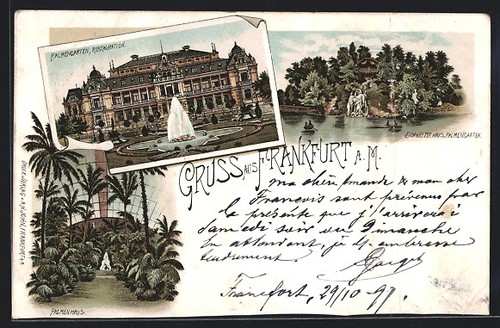 PALMENGARTEN, RESTAURATION.
SCHWEIZERHAUS, PALMENGARTEN.
GRUSS AUS FRANKFURT A.M.
Ma chère Amande & mon cher
François sont prévenus par
la présente que j'arriverai
samedi soir ou Dimanche
En attendant, je les embrasse
tendrement
Georges
Francfort, 29/10-97.
PALMENHAUS.